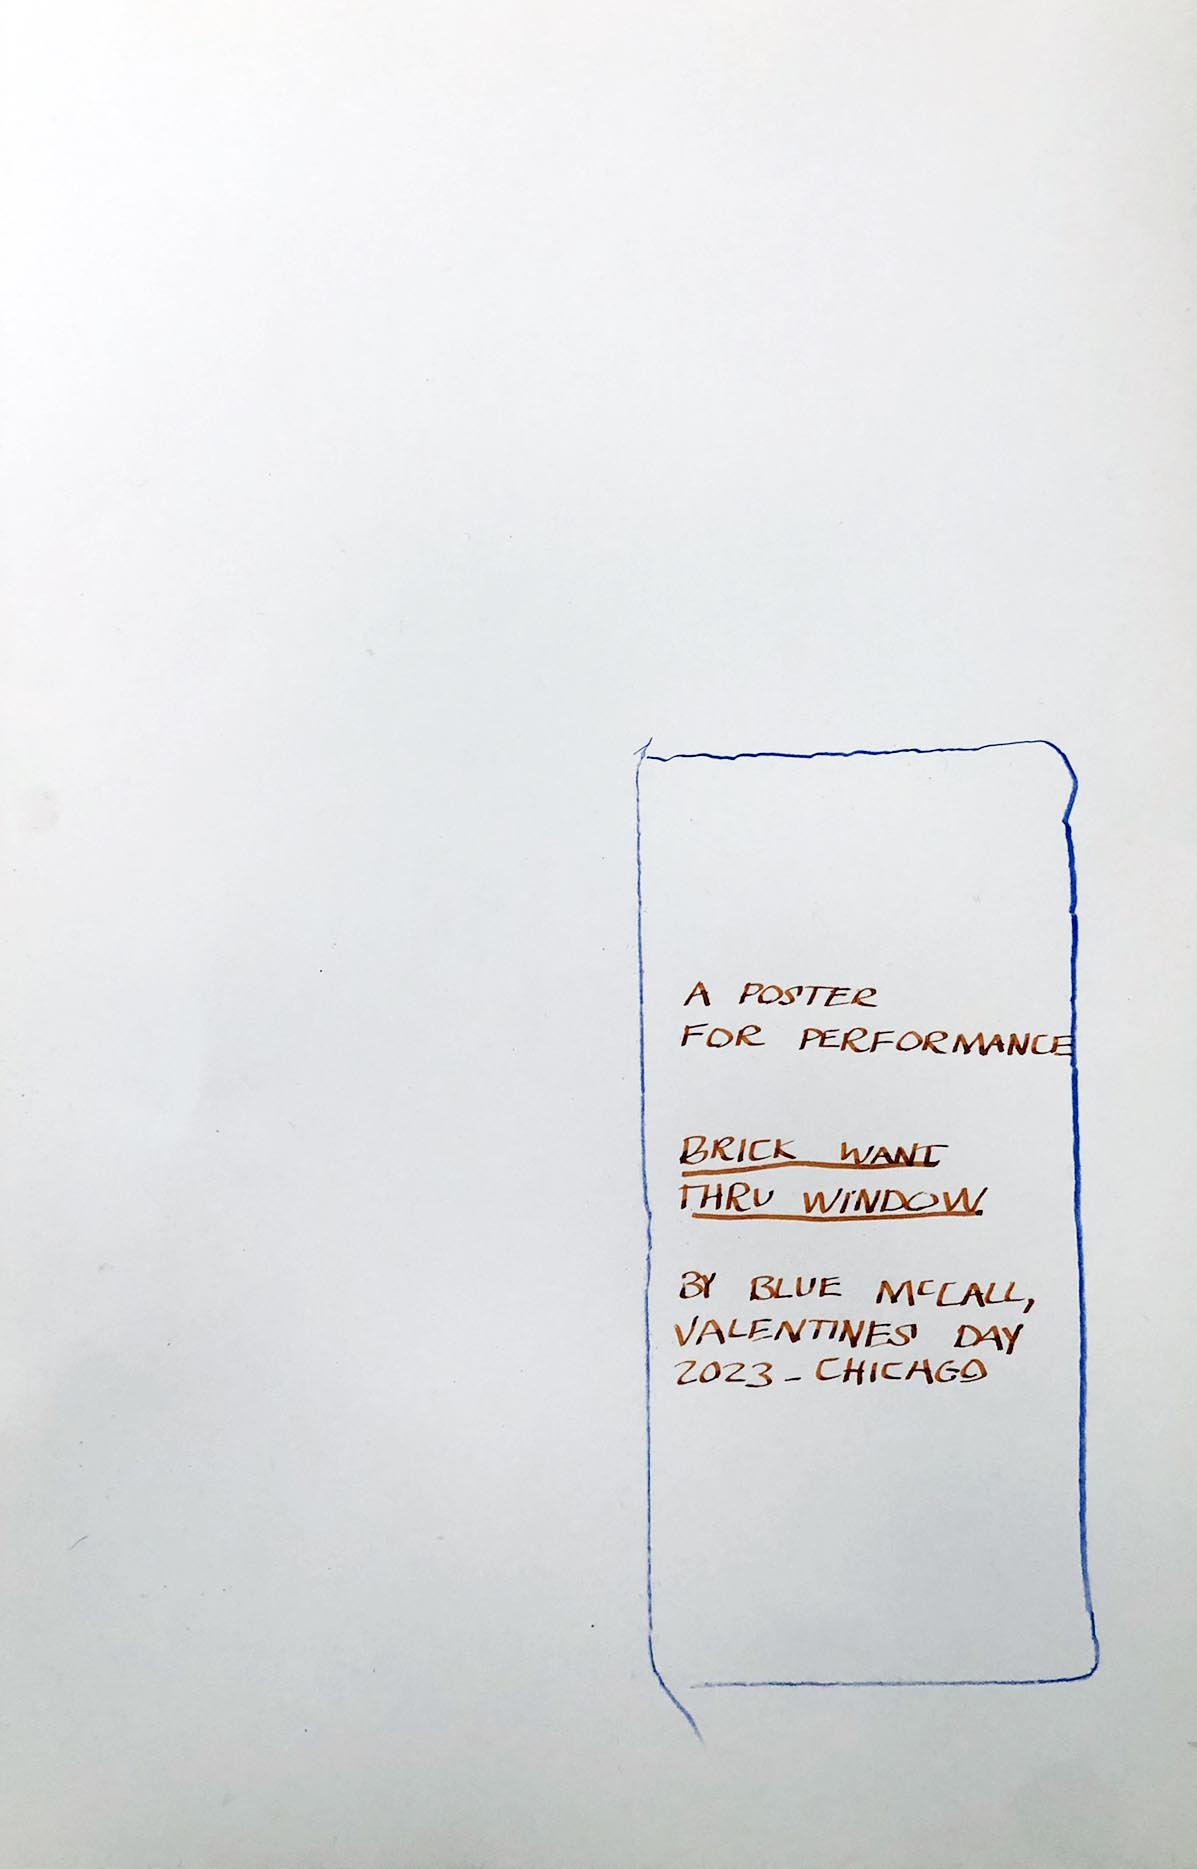 A POSTER
FOR PERFORMANCE
BRICK WANT
THRU WINDOW.
BY BLUE McCALL,
VALENTINES' DAY
2023 - CHICAGO